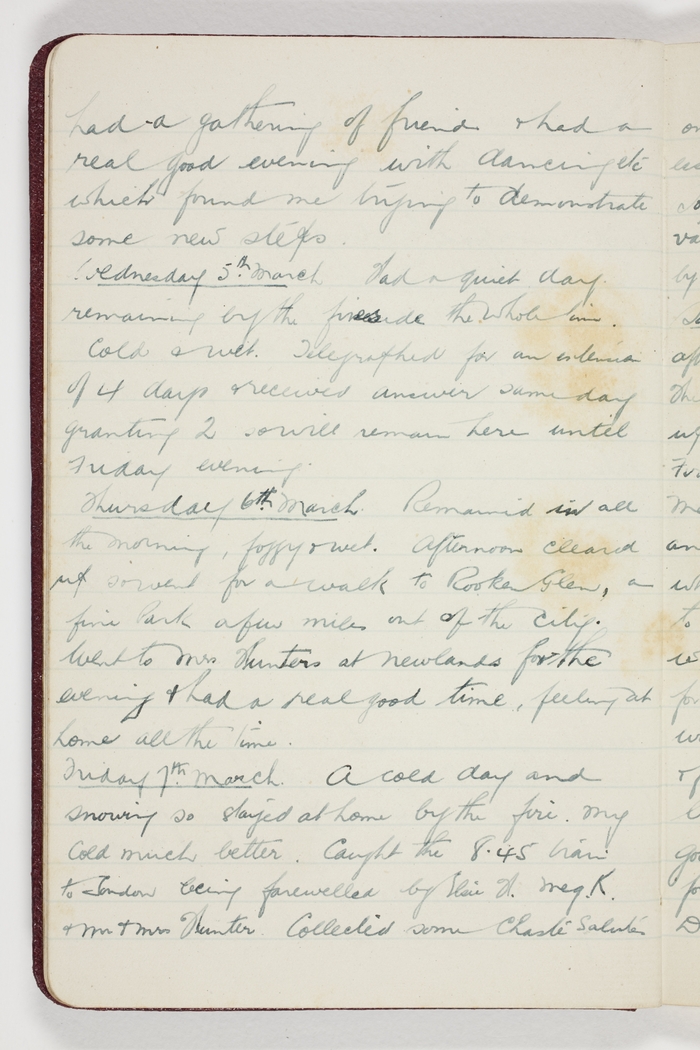 had a gathering of friends & had a
real good evening with dancing etc
which found me trying to demonstrate
some new steps.
Wednesday 5th March Had a quiet day
remaining by the fireside the whole time.
Cold & wet. Telegraphed for an extension
of 4 days & received answer same day
granting 2 so will remain here until
Friday evening.
Thursday 6th March. Remained in all
the morning, foggy & wet. Afternoon cleared
up so went for a walk to Rooken Glen, a
fine Park a few miles out of the City.
Went to Mrs Hunters at Newlands for the
evening & had a real good time, feeling at
home all the time.
Friday 7th March. A cold day and
snowing so stayed at home by the fire. My
cold much better. Caught the 8.45 train
to London being farewelled by Elsie H. Meg K.
& Mr & Mrs Hunter. Collected some Chaste Salutes